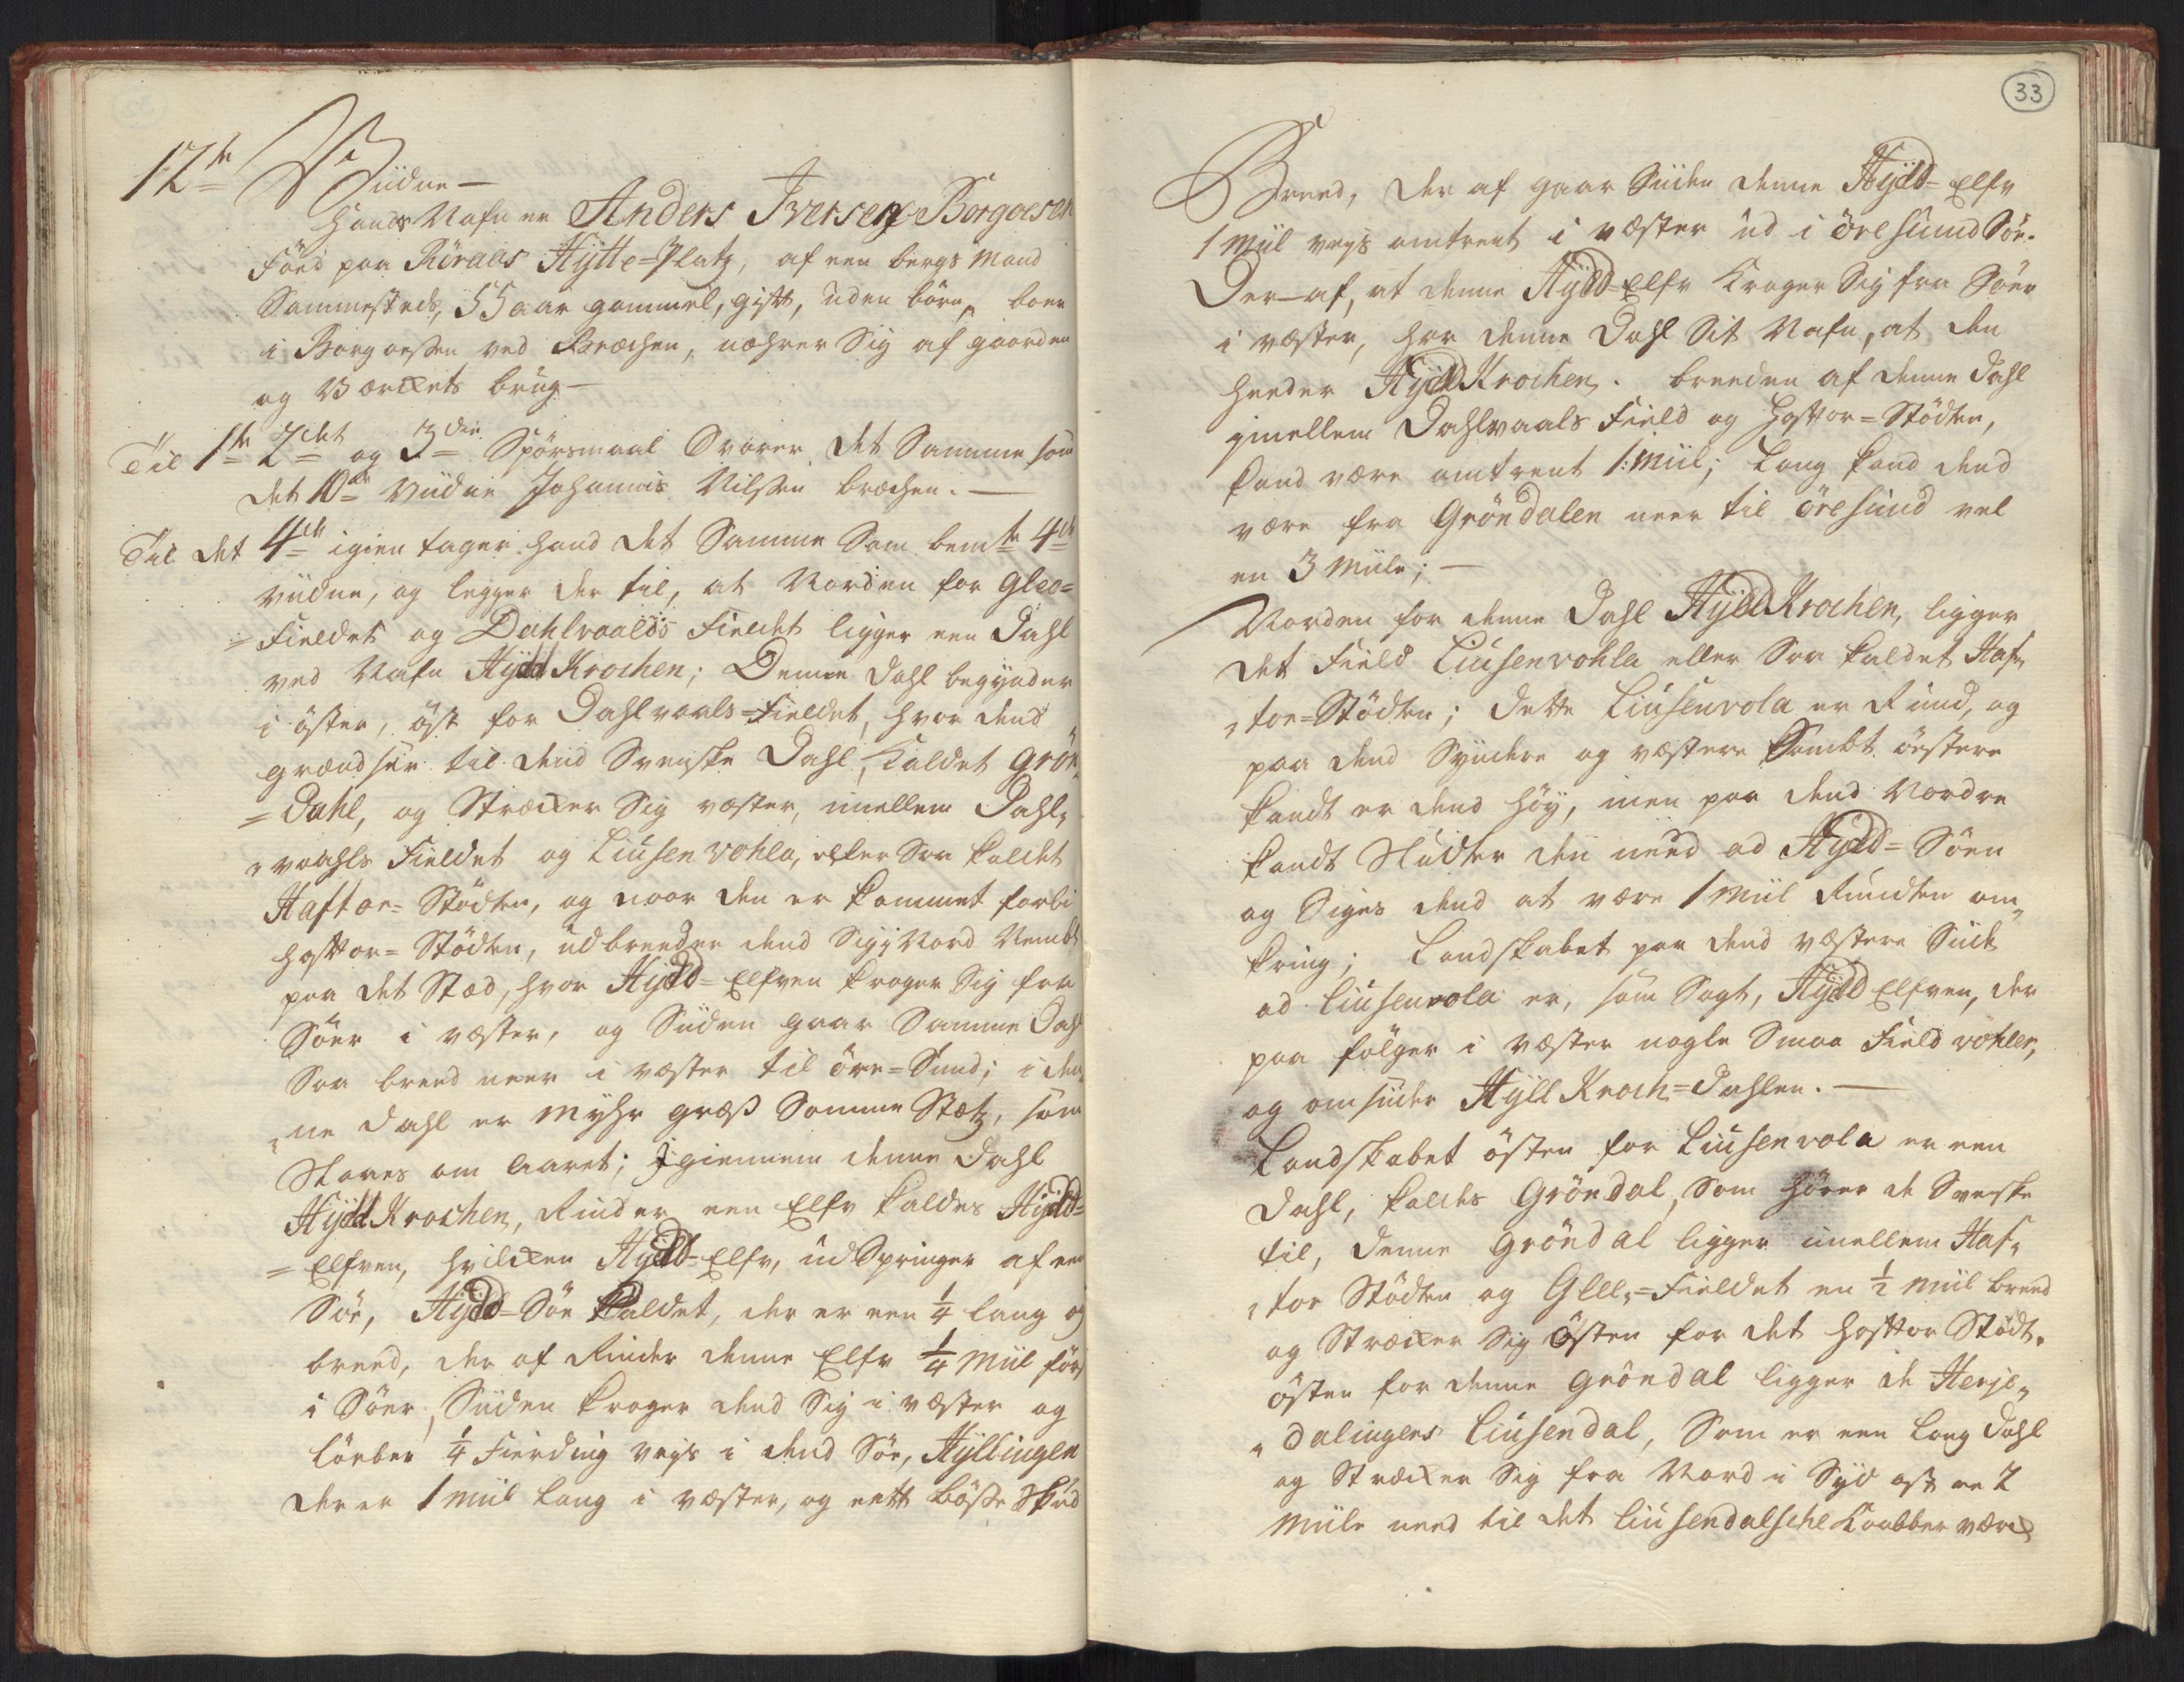 12te Viidne —
Hands Nafn er Anders Iversen Borgoesen
Föed paa Röraas Hytte=Platz, af een bergs Mand
Sammesteds, 55 aar gammel, gift, uden börn, boer
i Borgaasen ved Bræchen, næhrer Sig af gaarden
og Værckets brug —
Til 1te 2det og 3die Spörsmaal Svarer det Samme som
det 10de Viidne Johannis Nilssen bræchen. —
Til det 4de igien tager hand det Samme Som bemte 4de
viidne, og legger der til, at Norden for Gleo=
=Fieldet og Dahlvaalds Fieldet ligger een Dahl
ved Nafn HyddKrochen; Denne Dahl begynder
i öster, öst for Dahlvaals=Fieldet, hvor dend
grændser til dend Svenske Dahl, Kaldet Grön,
=Dahl, og Strecker Sig væster, imellem Dahl,
„vaahls Fieldet og Liusenvohla, eller Saa kaldet
Haftor=Stödten, og naar den er kommet forbi
haftor=Stödten, udbreeder dend Sig i Nord Nembl.
paa det Stæd, hvor Hydd=Elfven kroger Sig fra
Söer i væster, og Siiden gaar Samme Dahl
Saa breed neer i væster til öre=Sund; i den,
„ne Dahl er Myhr græs Somme Stætz, som
Slaaes om Aaret; Igiennem denne Dahl
HyddKrochen, Rinder een Elfv kaldes Hydd=
=Elfven, hvilcken Hydd=Elfv, udSpringer af een
Söe, Hydd=Söe kaldet, der er een 1/4 lang og
breed, der af Rinder denne Elfv 1/4 Miil först
i Söer, Siiden kroger dend Sig i væster og
löeber 1/4 Fierding veys i dend Söe, Hyllingen
der er 1 Miil lang i væster, og eett bösse Skud
33
Breed, der af gaar Siiden denne Hydd=Elfv
1 Miil veys omtrent i væster ud i öresund Söe.
Der-af, at denne Hydd=Elfv Kroger Sig fra Söer
i væster, har denne Dahl Sit Nafn, at den
heeder HyddKrochen. breeden af denne Dahl
imellem Dahlvaals Field og Haftor=Stödten,
kand være omtrent 1: Miil; Lang kand dend
være fra Gröndalen neer til öresund vel
en 3 Miile; —
Norden for denne Dahl HyddKrochen, ligger
det Field Liusenvohla eller Saa kaldet Haf„
„tor=Stödten; dette Liusenvola er Rund, og
paa dend Syndere og væstere Sambt östere
kandt er dend höy, men paa dend Nordre
kandt Slutter den need ad Hydd=Söen
og Siges dend at være 1 Miil Rundten om„
kring; Landskabet paa dend væstere Siide
ad Liusenvola er, som Sagt, Hydd Elfven, der
paa fölger i væster nogle Smaa Field vohler,
og omsiider HyllKroch=Dahlen. —
Landskabet östen for Liusenvola er een
Dahl, kaldes Gröndal, Som hörer de Svenske
til, denne Gröndal ligger imellem Haf„
„tor Stödten og Glee„=Fieldet en 1/2 Miil breed
og Strecker Sig östen for det Haftor Stödt.
östen for denne Gröndal ligger de Herje„
„dalingers Liusendal, Som er een Lang Dahl
og Strecker Sig fra Nord i Syd ost en 2
Miile need til det Liusendalsche Kaabber værck